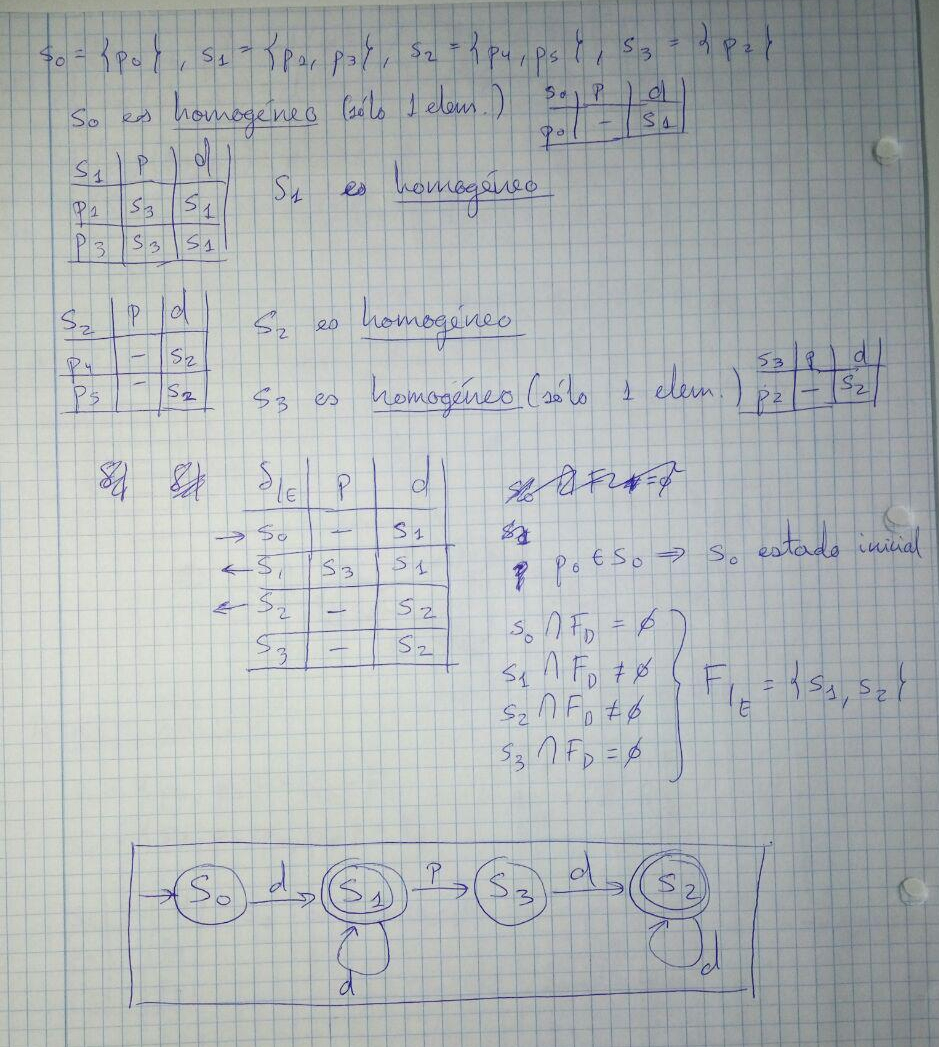 S₀ = {p₀}, S₁ = {p₁, p₃}, S₂ = {p₄, p₅}, S₃ = {p₂}
S₀ es homogéneo (sólo 1 elem.)
S₀ | p | d
p₀ | – | S₁
S₁ | p | d
p₁ | S₃ | S₁
p₃ | S₃ | S₁
S₁ es homogéneo
S₂ | p | d
p₄ | – | S₂
p₅ | – | S₂
S₂ es homogéneo
S₃ es homogéneo (sólo 1 elem.)
S₃ | p | d
p₂ | – | S₂
δ/E | p | d
→ S₀ | – | S₁
← S₁ | S₃ | S₁
← S₂ | – | S₂
S₃ | – | S₂
p₀ ∈ S₀ ⇒ S₀ estado inicial
S₀ ∩ F_D = ∅
S₁ ∩ F_D ≠ ∅
S₂ ∩ F_D ≠ ∅
S₃ ∩ F_D = ∅
F/E = {S₁, S₂}
→ S₀ d → S₁ p → S₃ d → S₂
d d